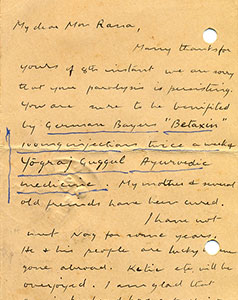 My dear Mon Rana,
Many thanks for
yours of 8th instant we are sorry
that your paralysis is persisting.
You are sure to be benifited
by German Bayers "Betaxin"
100mg injections twice a week &
Yograj Guggul Ayurvedic
medicine. My mother & several
old friends have been cured.
I have not
met Nay for some years.
He & his people are lucky
gone abroad. Katie etc will be
overjoyed. I am glad that